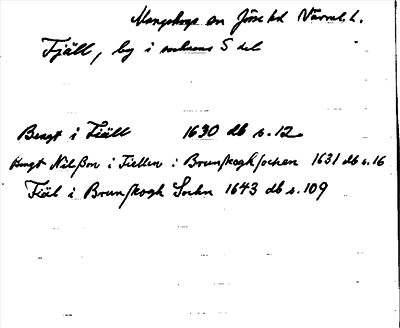 Mangskogs sn Jösse hd Värml. l.
Fjäll, by i socknens S del
Bengt i Fiäll 1630 db s. 12
Bengt Nilßon i Fiellen i Brunskoghsochen 1631 db s. 16
Fiäl i Brunskogh Sochn 1643 db s. 109